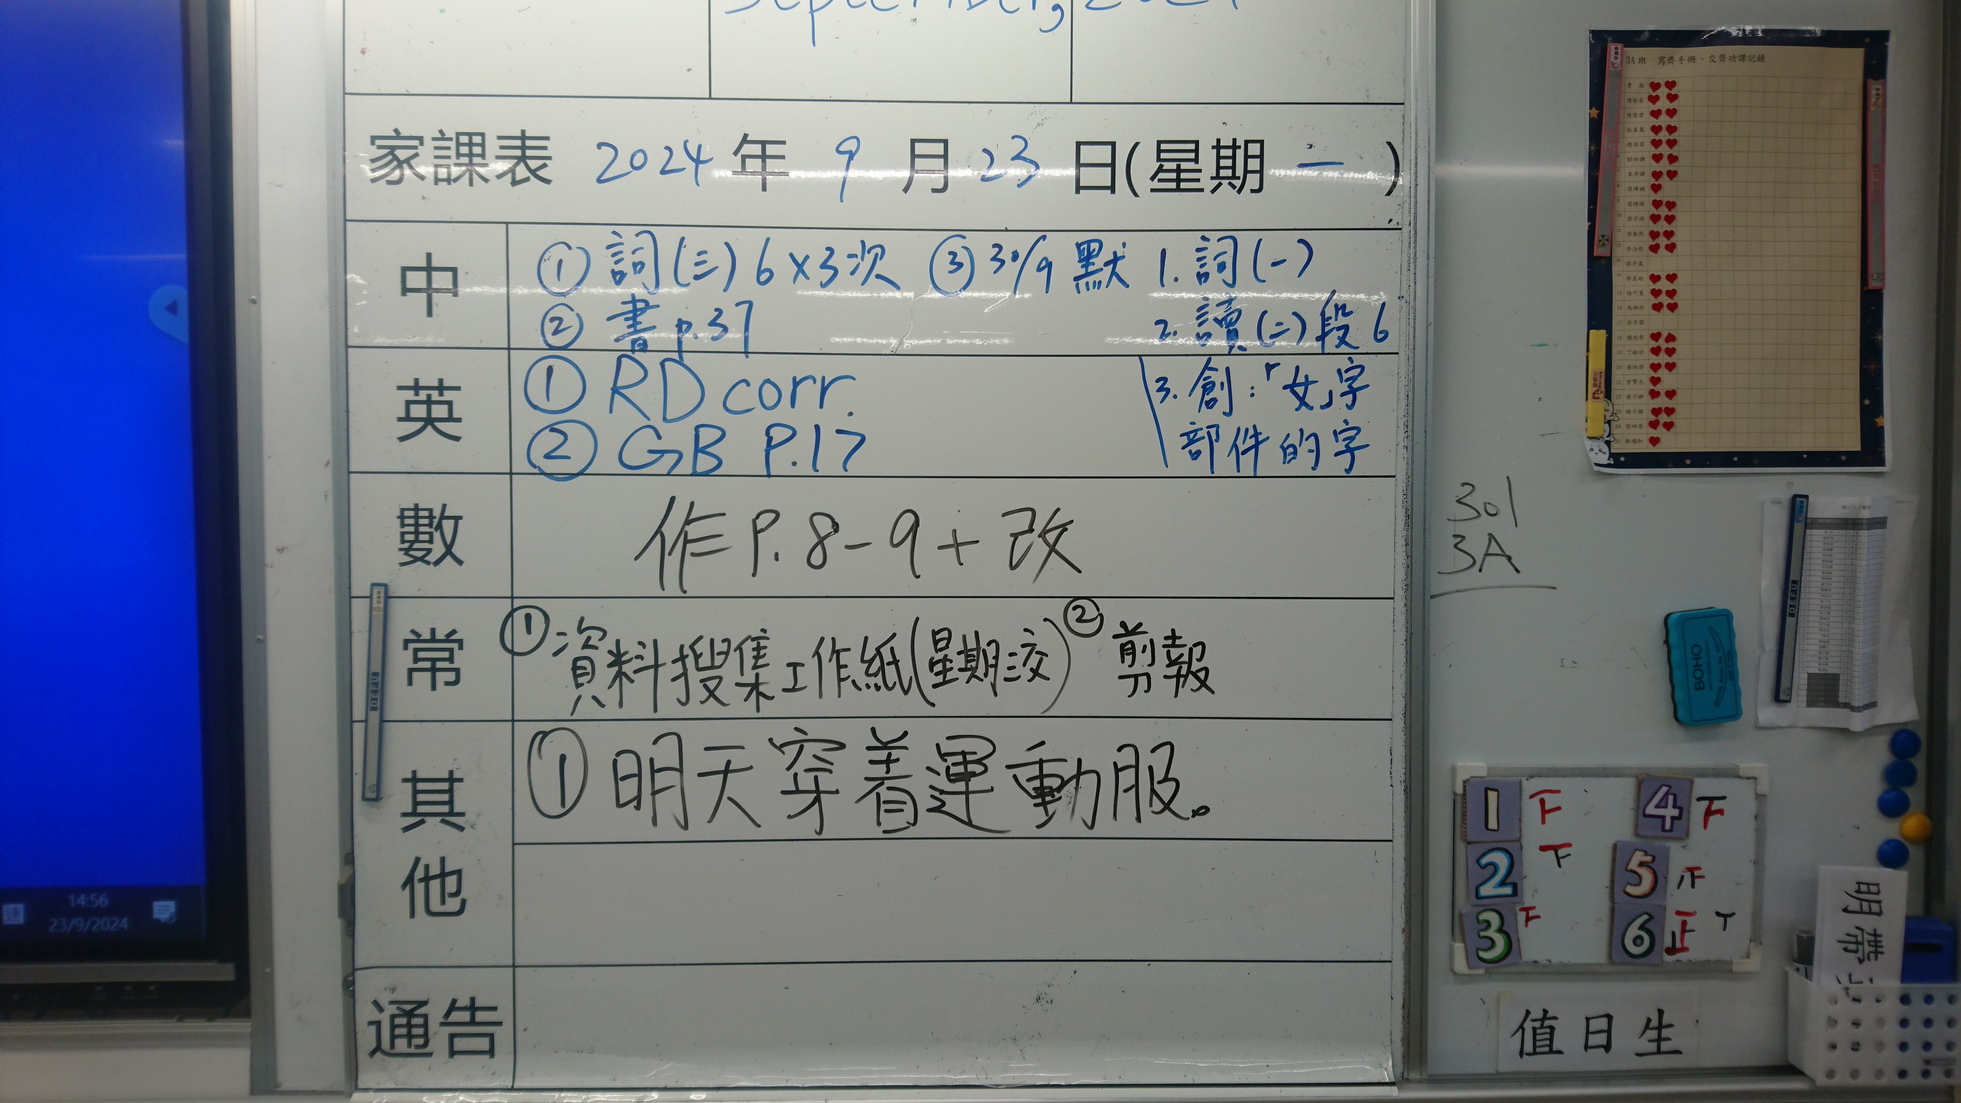 September, 2024
家課表 2024 年 9 月 23 日(星期 一 )
中
① 詞(三) 6×3次 ③ 30/9 默 1. 詞(一)
② 書 p.37 2. 讀(二)段6
英
① RD corr. 3. 創:「女」字
② GB P.17 部件的字
數
作 P. 8-9 + 改
常
① 資料搜集工作紙(星期三交) ② 剪報
其他
① 明天穿着運動服。
通告
14:56
23/9/2024
3A班 寫齊手冊、交齊功課記錄
301
3A
BOHO
1 下 4 下
2 下 5 正
3 下 6 正 丅
明帶
值日生